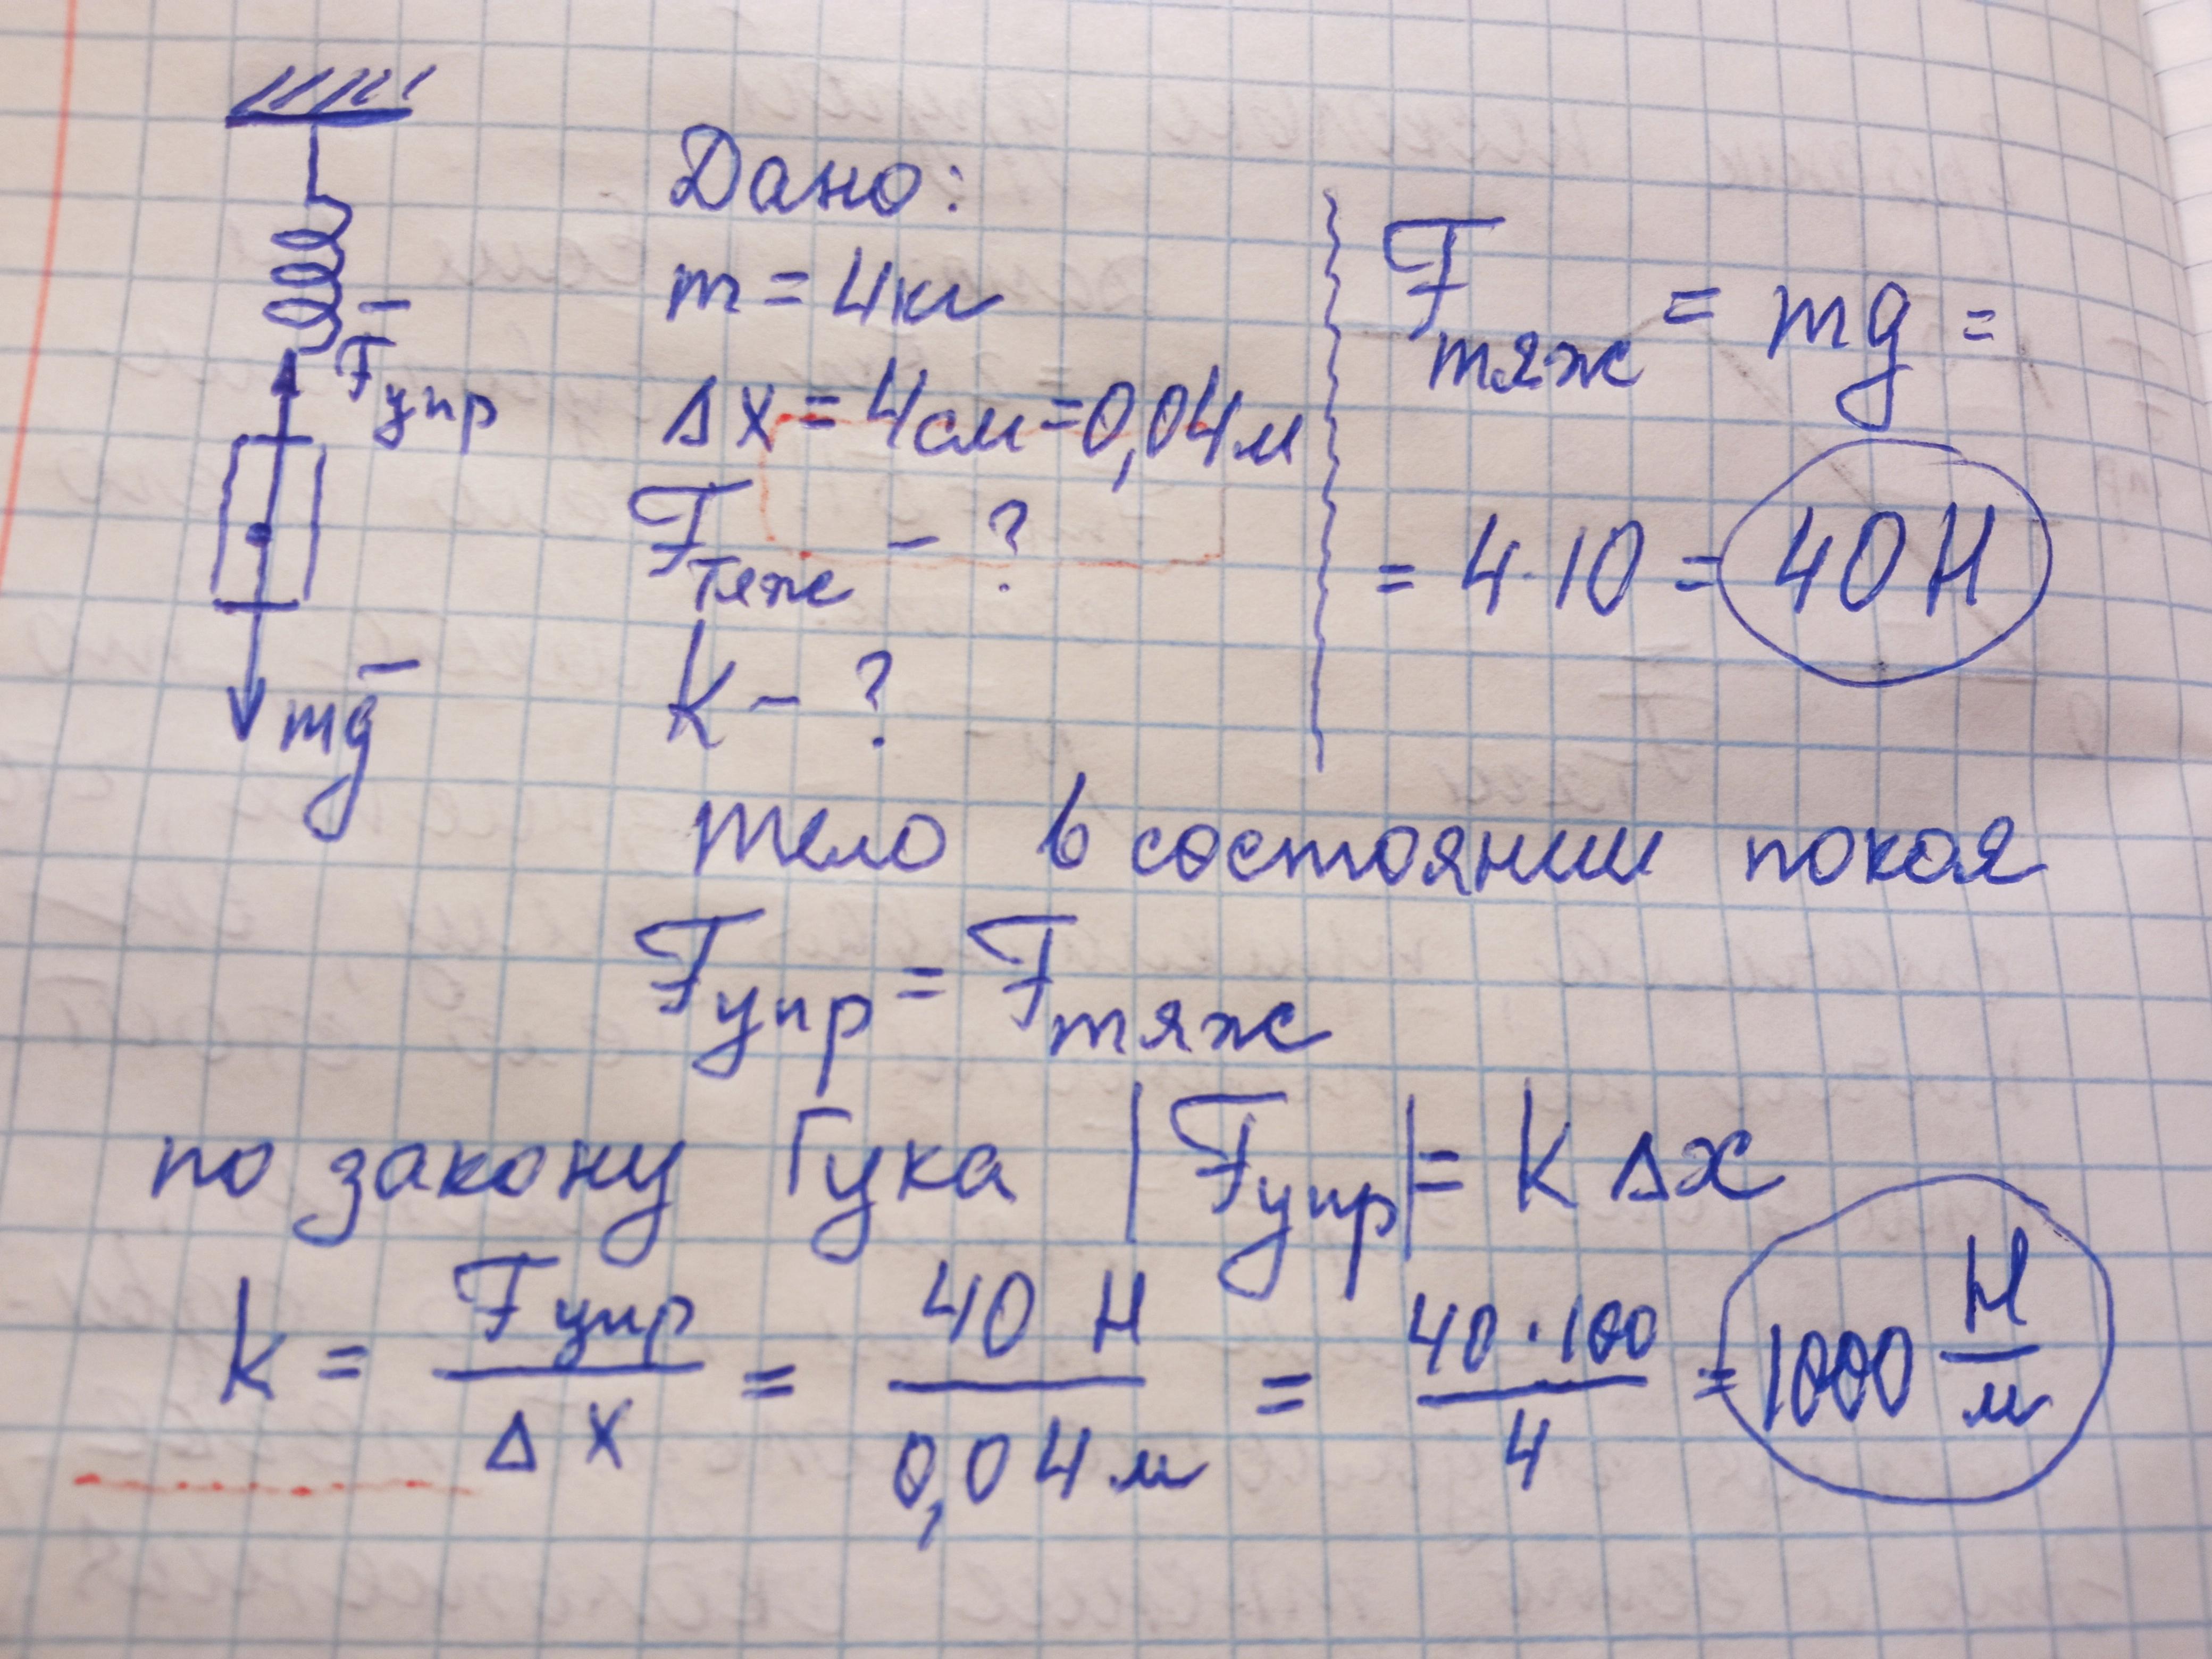 F̄упр
mḡ
Дано:
m = 4кг
Δx = 4см = 0,04м
Fтяж - ?
k - ?
Fтяж = mg =
= 4·10 = 40 Н
тело в состоянии покоя
Fупр = Fтяж
по закону Гука |Fупр| = k Δx
k = Fупр / Δx = 40 Н / 0,04 м = 40·100 / 4 = 1000 Н/м